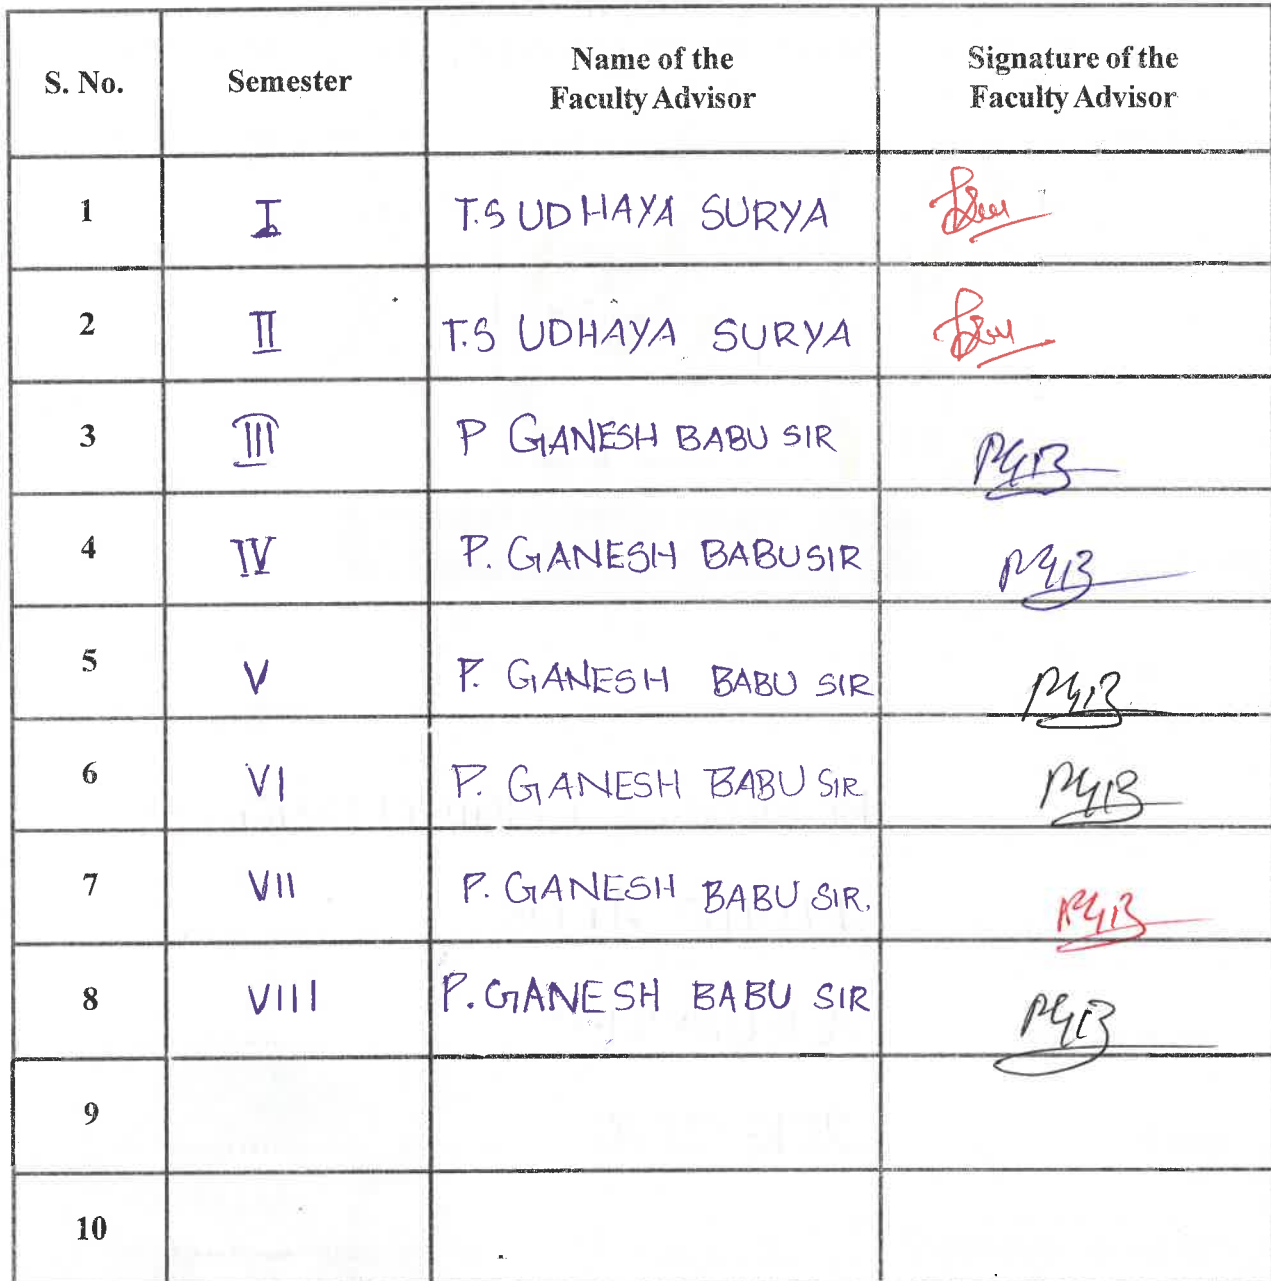 S. No. Semester Name of the Faculty Advisor Signature of the Faculty Advisor
1 I T.S UDHAYA SURYA
2 II T.S UDHAYA SURYA
3 III P GANESH BABU SIR PGB
4 IV P. GANESH BABU SIR PGB
5 V P. GANESH BABU SIR PGB
6 VI P. GANESH BABU SIR PGB
7 VII P. GANESH BABU SIR. PGB
8 VIII P. GANESH BABU SIR PGB
9
10